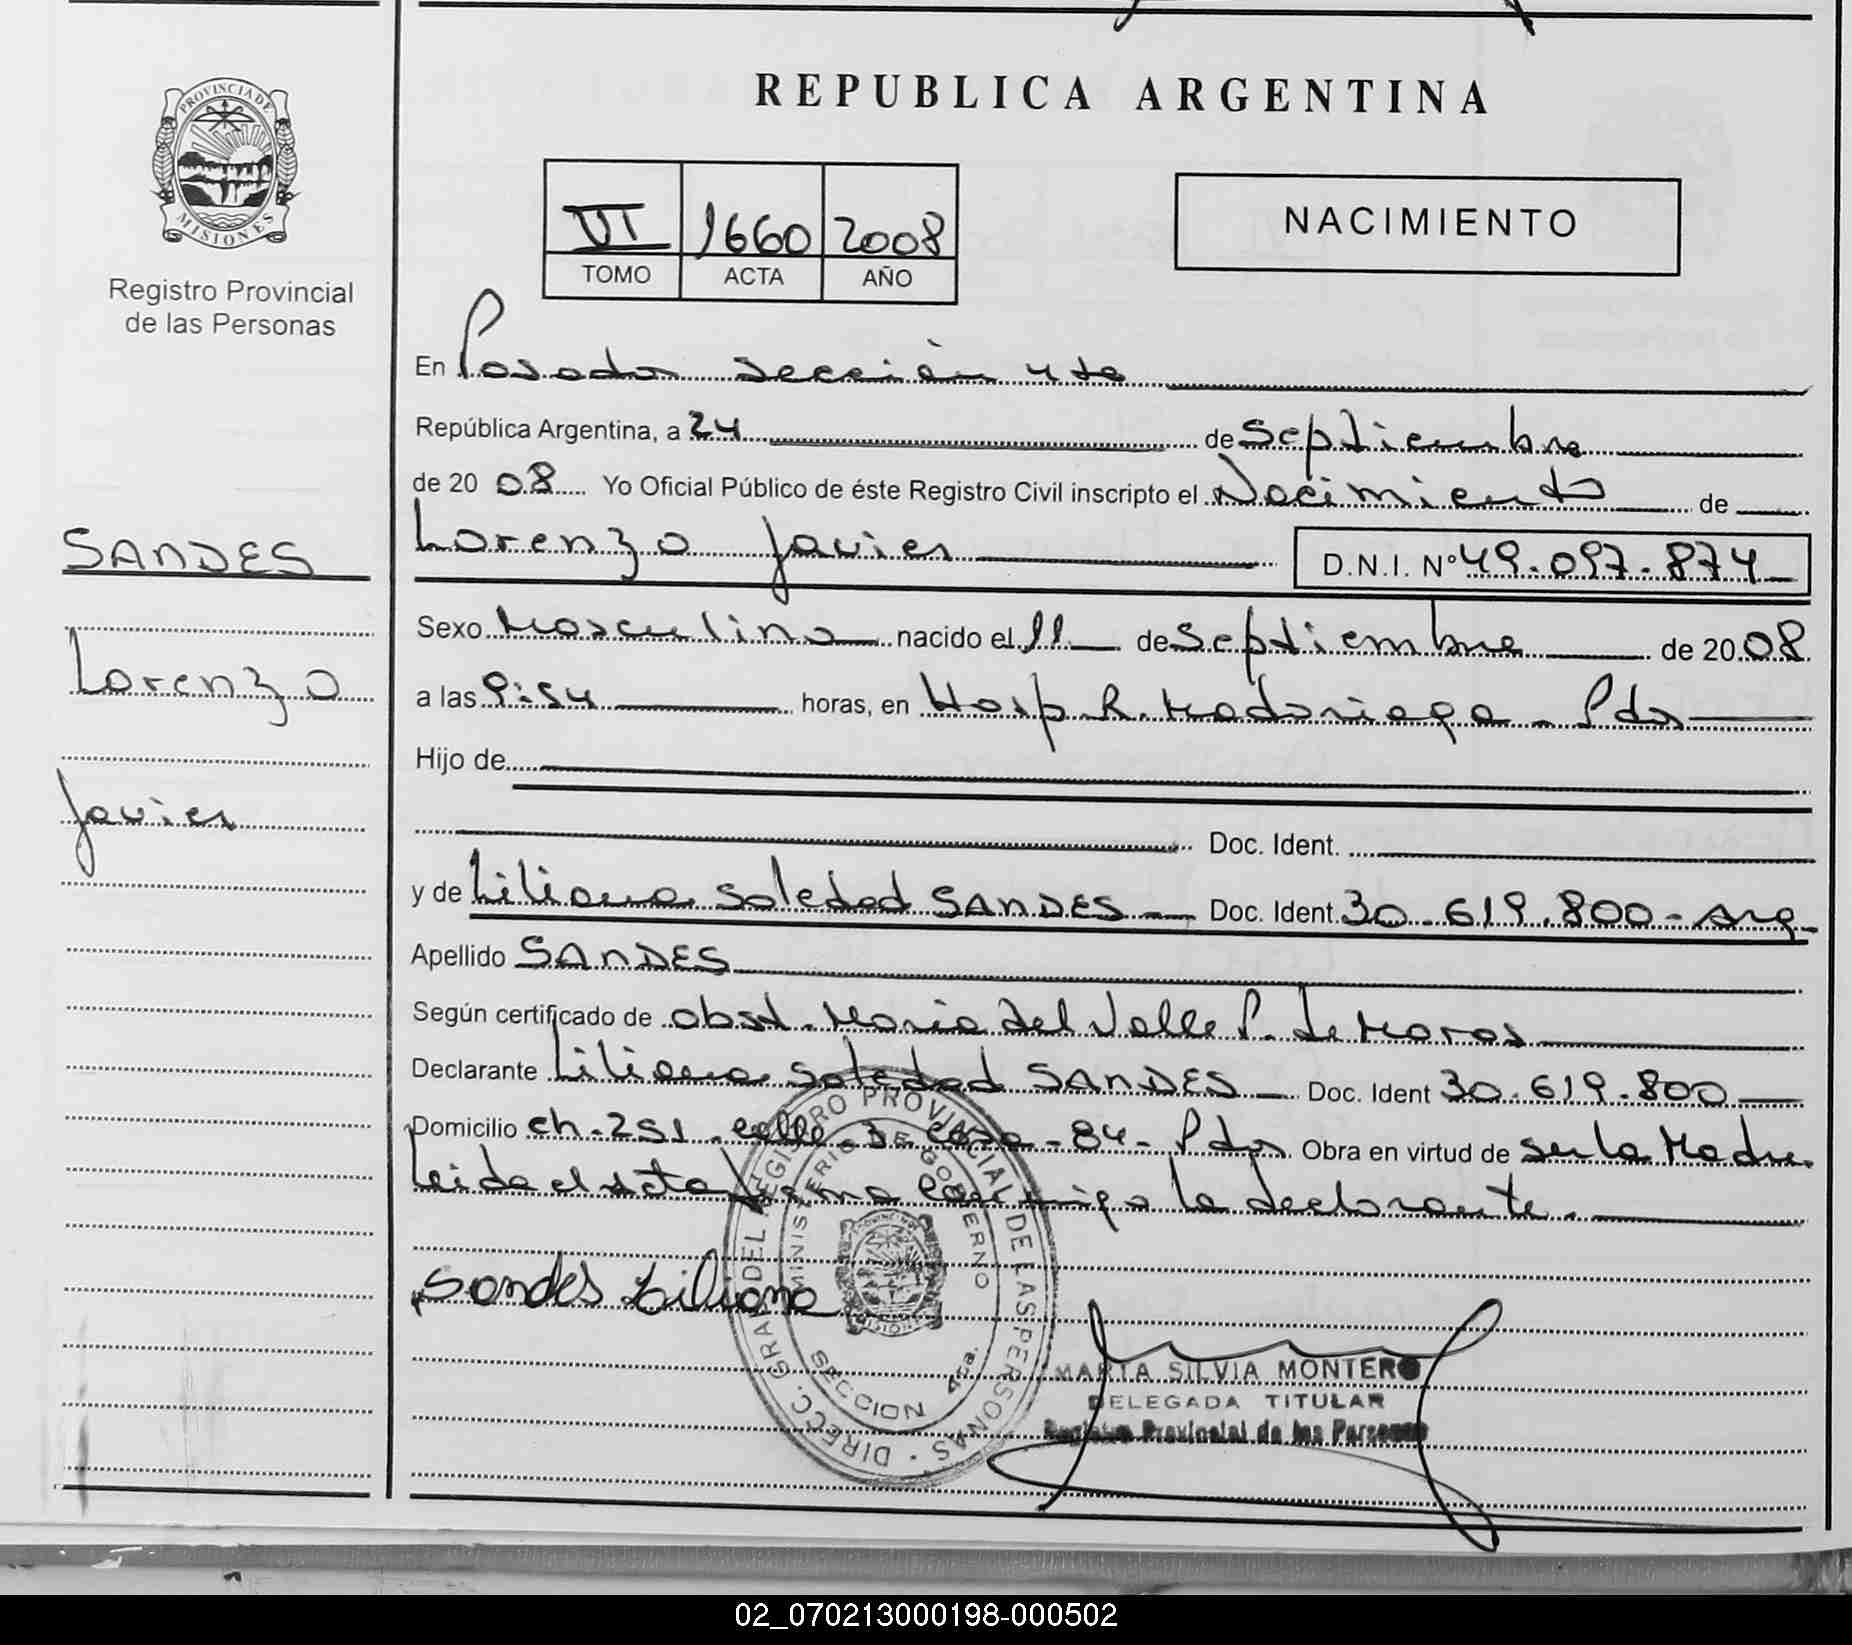 REPUBLICA ARGENTINA
PROVINCIA DE
MISIONES
Registro Provincial
de las Personas
VI 1660 2008
TOMO ACTA AÑO
NACIMIENTO
En Posadas sección 4ta
República Argentina, a 24 de Septiembre
de 20 08 Yo Oficial Público de éste Registro Civil inscripto el Nacimiento de
Lorenzo Javier D.N.I. Nº 49.097.874
Sexo Masculino nacido el 11 de Septiembre de 20 08
a las 9:54 horas, en Hosp R. Madariaga - Pdas
Hijo de
Doc. Ident.
y de Liliana Soledad SANDES Doc. Ident. 30.619.800 - Arg.
Apellido SANDES
Según certificado de obst. Maria del Valle P. de Maras
Declarante Liliana Soledad SANDES Doc. Ident 30.619.800
Domicilio ch. 251. calle - 3 casa - 84 - Pdas Obra en virtud de ser la Madre.
Leida el acta firma conmigo la declarante.
Sandes Liliana
SANDES
Lorenzo
Javier
DIRECC. GRAL DEL REGISTRO PROVINCIAL DE LAS PERSONAS
MINISTERIO DE GOBIERNO
SECCION 4ta.
MARTA SILVIA MONTERO
DELEGADA TITULAR
Registro Provincial de las Personas
02_070213000198-000502